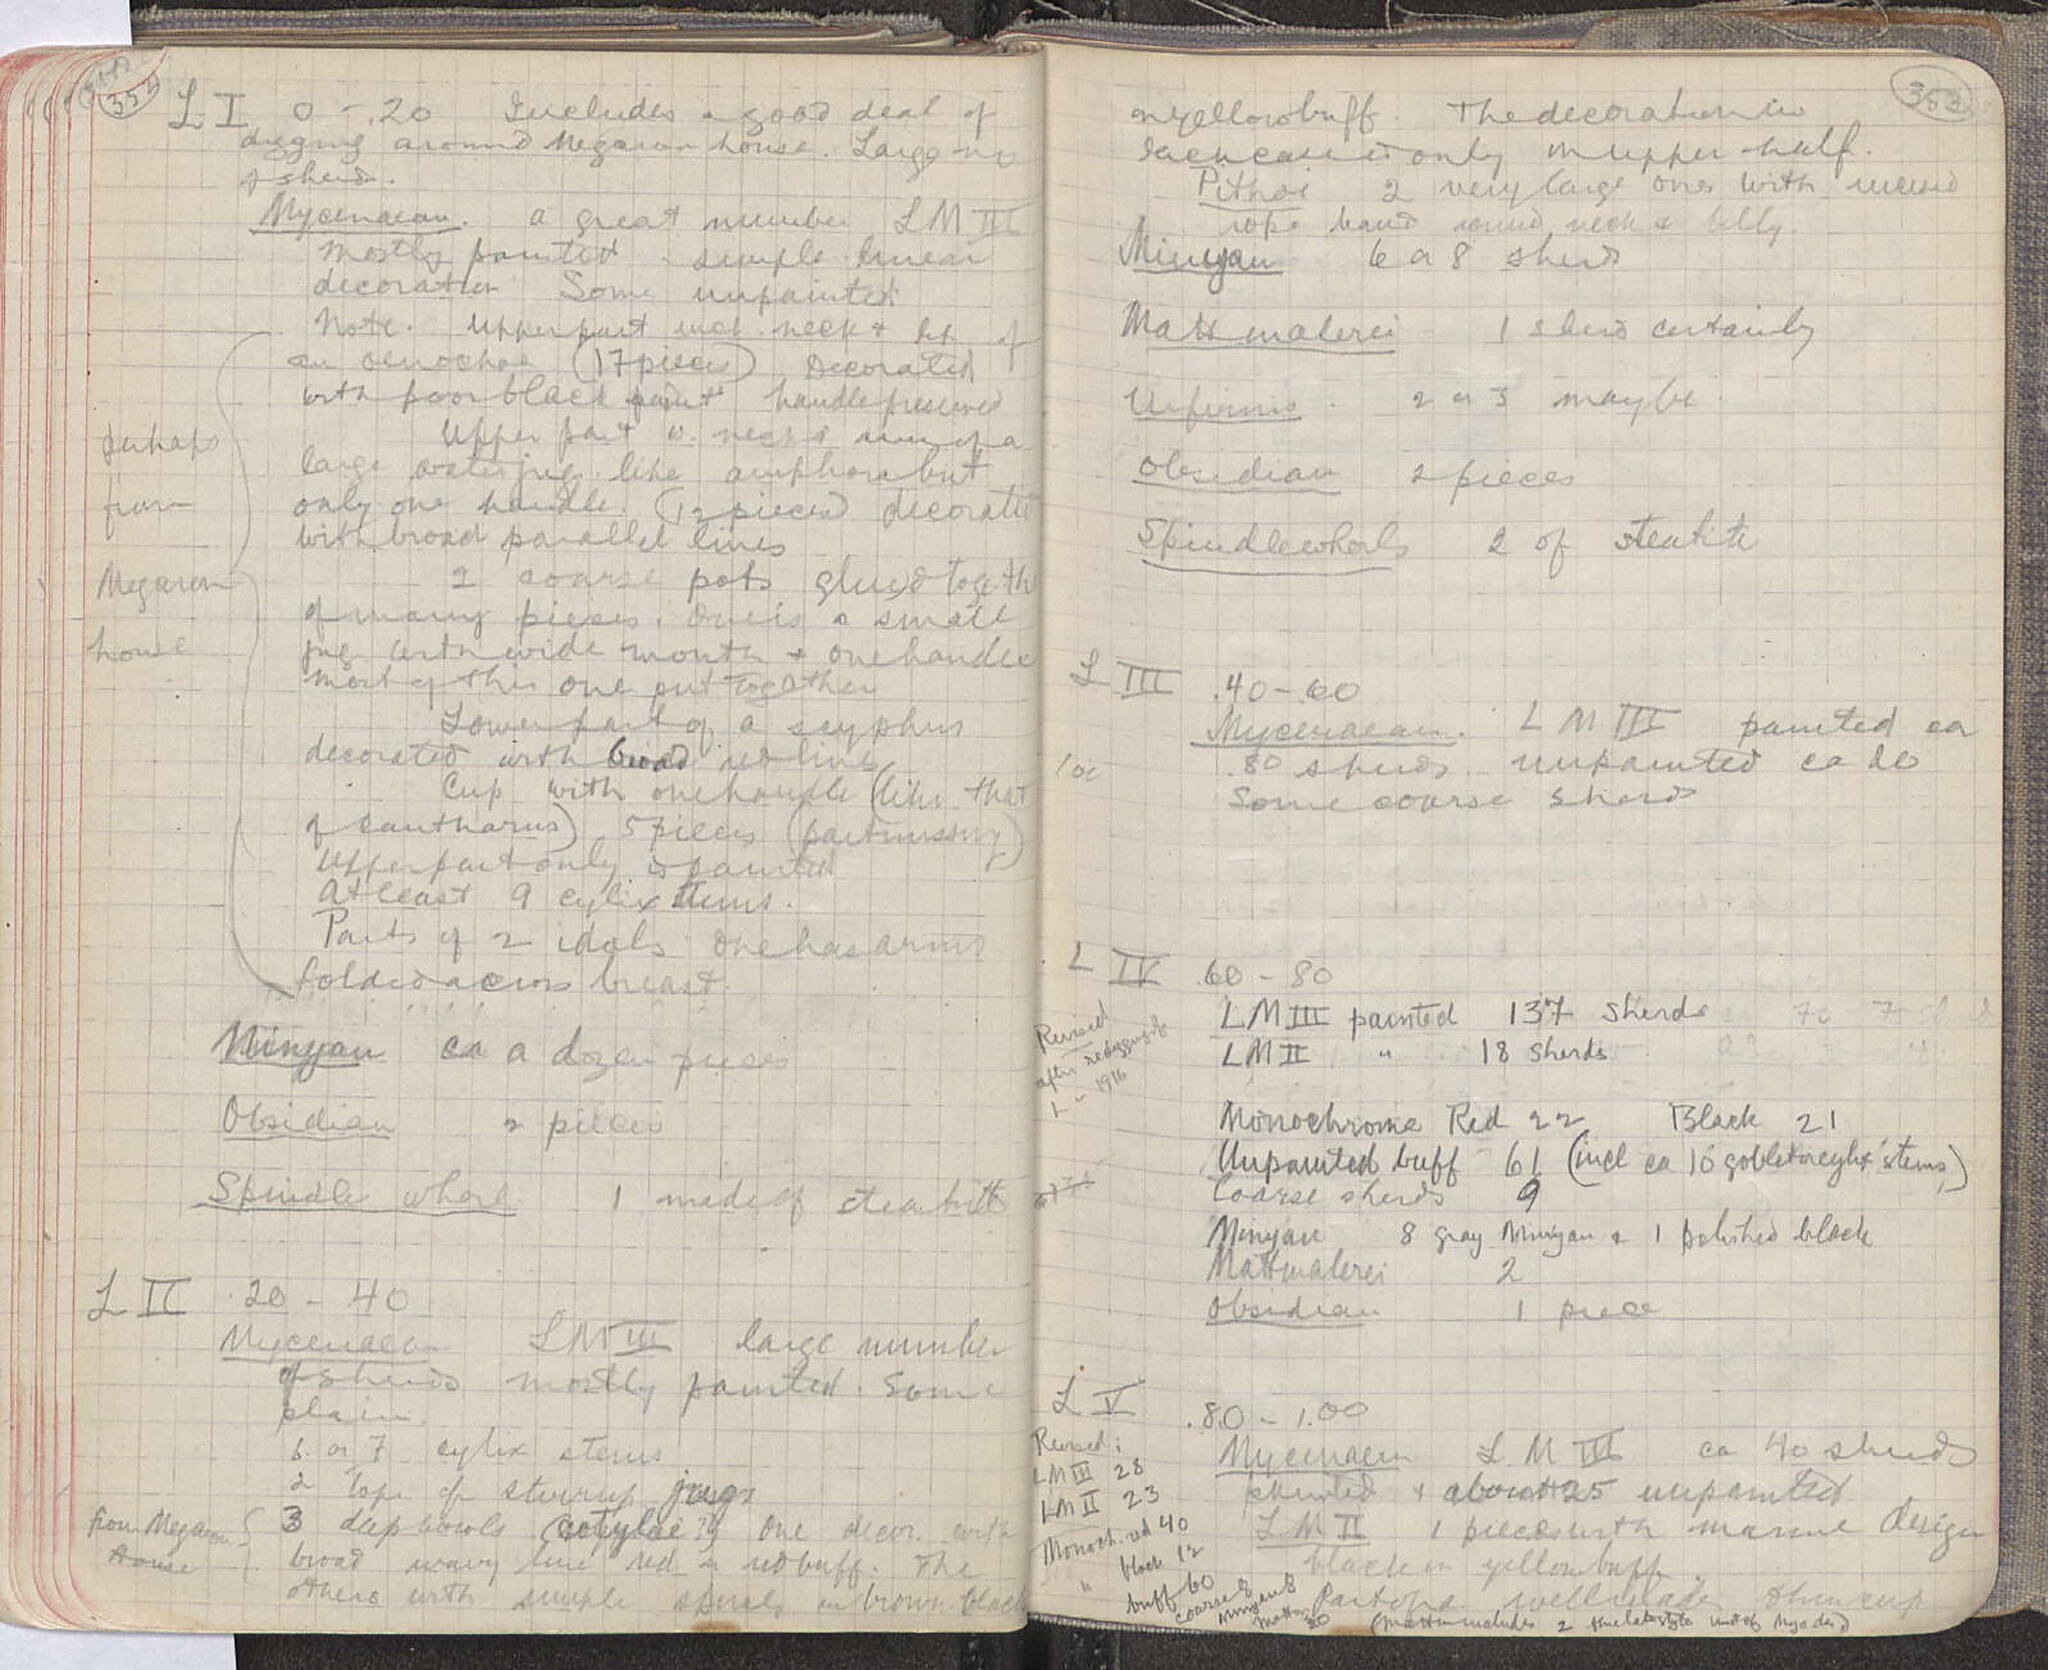 352
L I 0 - .20 Includes a good deal of
digging around Megaron house. Large no
of sherds.
Mycenaean. a great number LM III
mostly painted simple linear
decoration Some unpainted
Note. Upper part incl. neck & lip of
an oenochoe (17 pieces) Decorated
with poor black paint handle preserved
Upper part w. neck & rim of a
large water jug like amphora but
only one handle. (12 pieces) decorated
with broad parallel lines
2 coarse pots glued together
of many pieces. One is a small
jug with wide mouth & one handle
most of this one put together
Lower part of a scyphus
decorated with broad red lines
Cup with one handle (like that
of cantharus) 5 pieces (part missing)
Upper part only is painted
At least 9 cylix stems.
Parts of 2 idols one has arms
folded across breast.
perhaps
from
Megaron
house
Minyan ca a dozen pieces
Obsidian 2 pieces
Spindle whorl 1 made of steatite
L II .20 - .40
Mycenaean LM III large number
of sherds mostly painted. Some
plain.
6 or 7 cylix stems
2 tops of stirrup jugs
from Megaron
House
3 deep bowls (cotylae?) One decor. with
broad wavy line red on red buff. The
others with simple spirals in brown black
353
on yellow buff. The decoration in
each case is only on upper half.
Pithoi 2 very large ones with incised
rope band round neck & belly.
Minyan 6 or 8 sherds
Mattmalerei 1 sherd certainly
Urfirnis. 2 or 3 maybe.
Obsidian 2 pieces
Spindlewhorls 2 of steatite
L III .40 - .60
Mycenaean. LM III painted ca
80 sherds unpainted ca
Some coarse sherds
L IV .60 - 80
Revised
after redigging of
L - 1916
LM III painted 137 sherds
LM II " 18 sherds
Monochrome Red 22 Black 21
Unpainted buff 61 (incl ca 16 goblet or cylix stems)
Coarse sherds 9
Minyan 8 gray Minyan & 1 polished black
Mattmalerei 2
Obsidian 1 piece
L V .80 - 1.00
Mycenaean LM III ca 40 sherds
painted & about 25 unpainted
LM II 1 piece with marine design
black on yellow buff.
Part of a well made thin cup
Revised:
LM III 28
LM II 23
Monoch. red 40
" black 12
buff 60
coarse 8
Minyan 8
Mattm 20 (Mattm includes 2